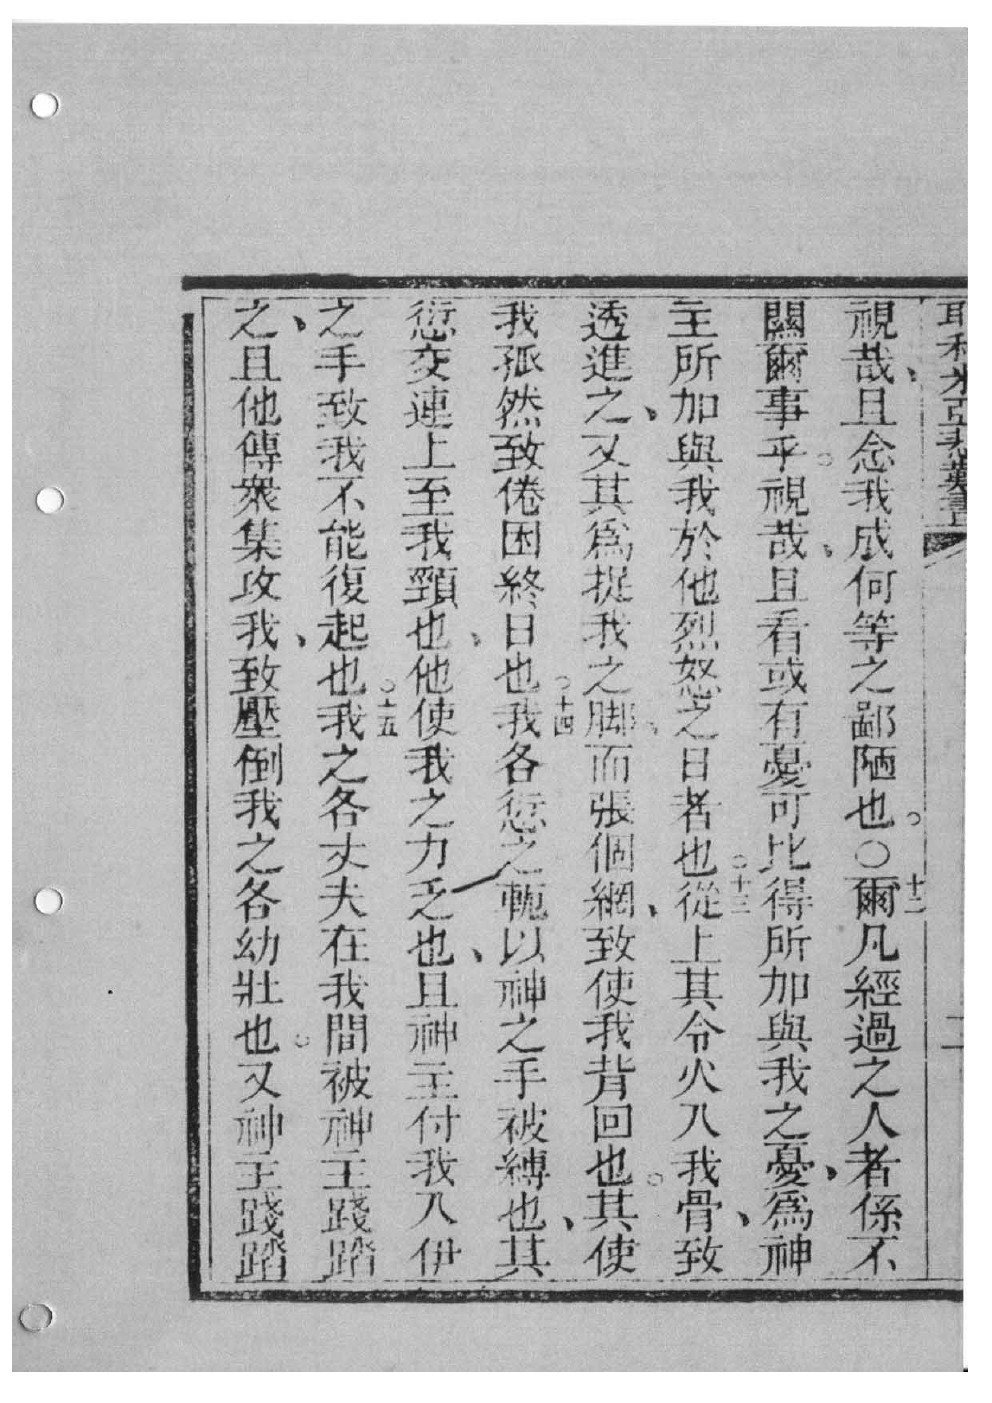 耶利米亞悲歎書 二
視哉、且念我成何等之鄙陋也。○十二爾凡經過之人者係不
關爾事乎。視哉、且看或有憂可比得所加與我之憂、爲神
主所加與我於他烈怒之日者也。十三從上其令火入我骨、致
透進之、又其爲捉我之脚、而張個網、致使我背回也。其使
我孤然致倦困終日也。十四我各愆之軛以神之手被縛也、其
愆交連上至我頸也、他使我之力乏也、且神主付我入伊
之手致我不能復起也。十五我之各丈夫在我間被神主踐踏
之、且他傳衆集攻我、致壓倒我之各幼壯也。又神主踐踏